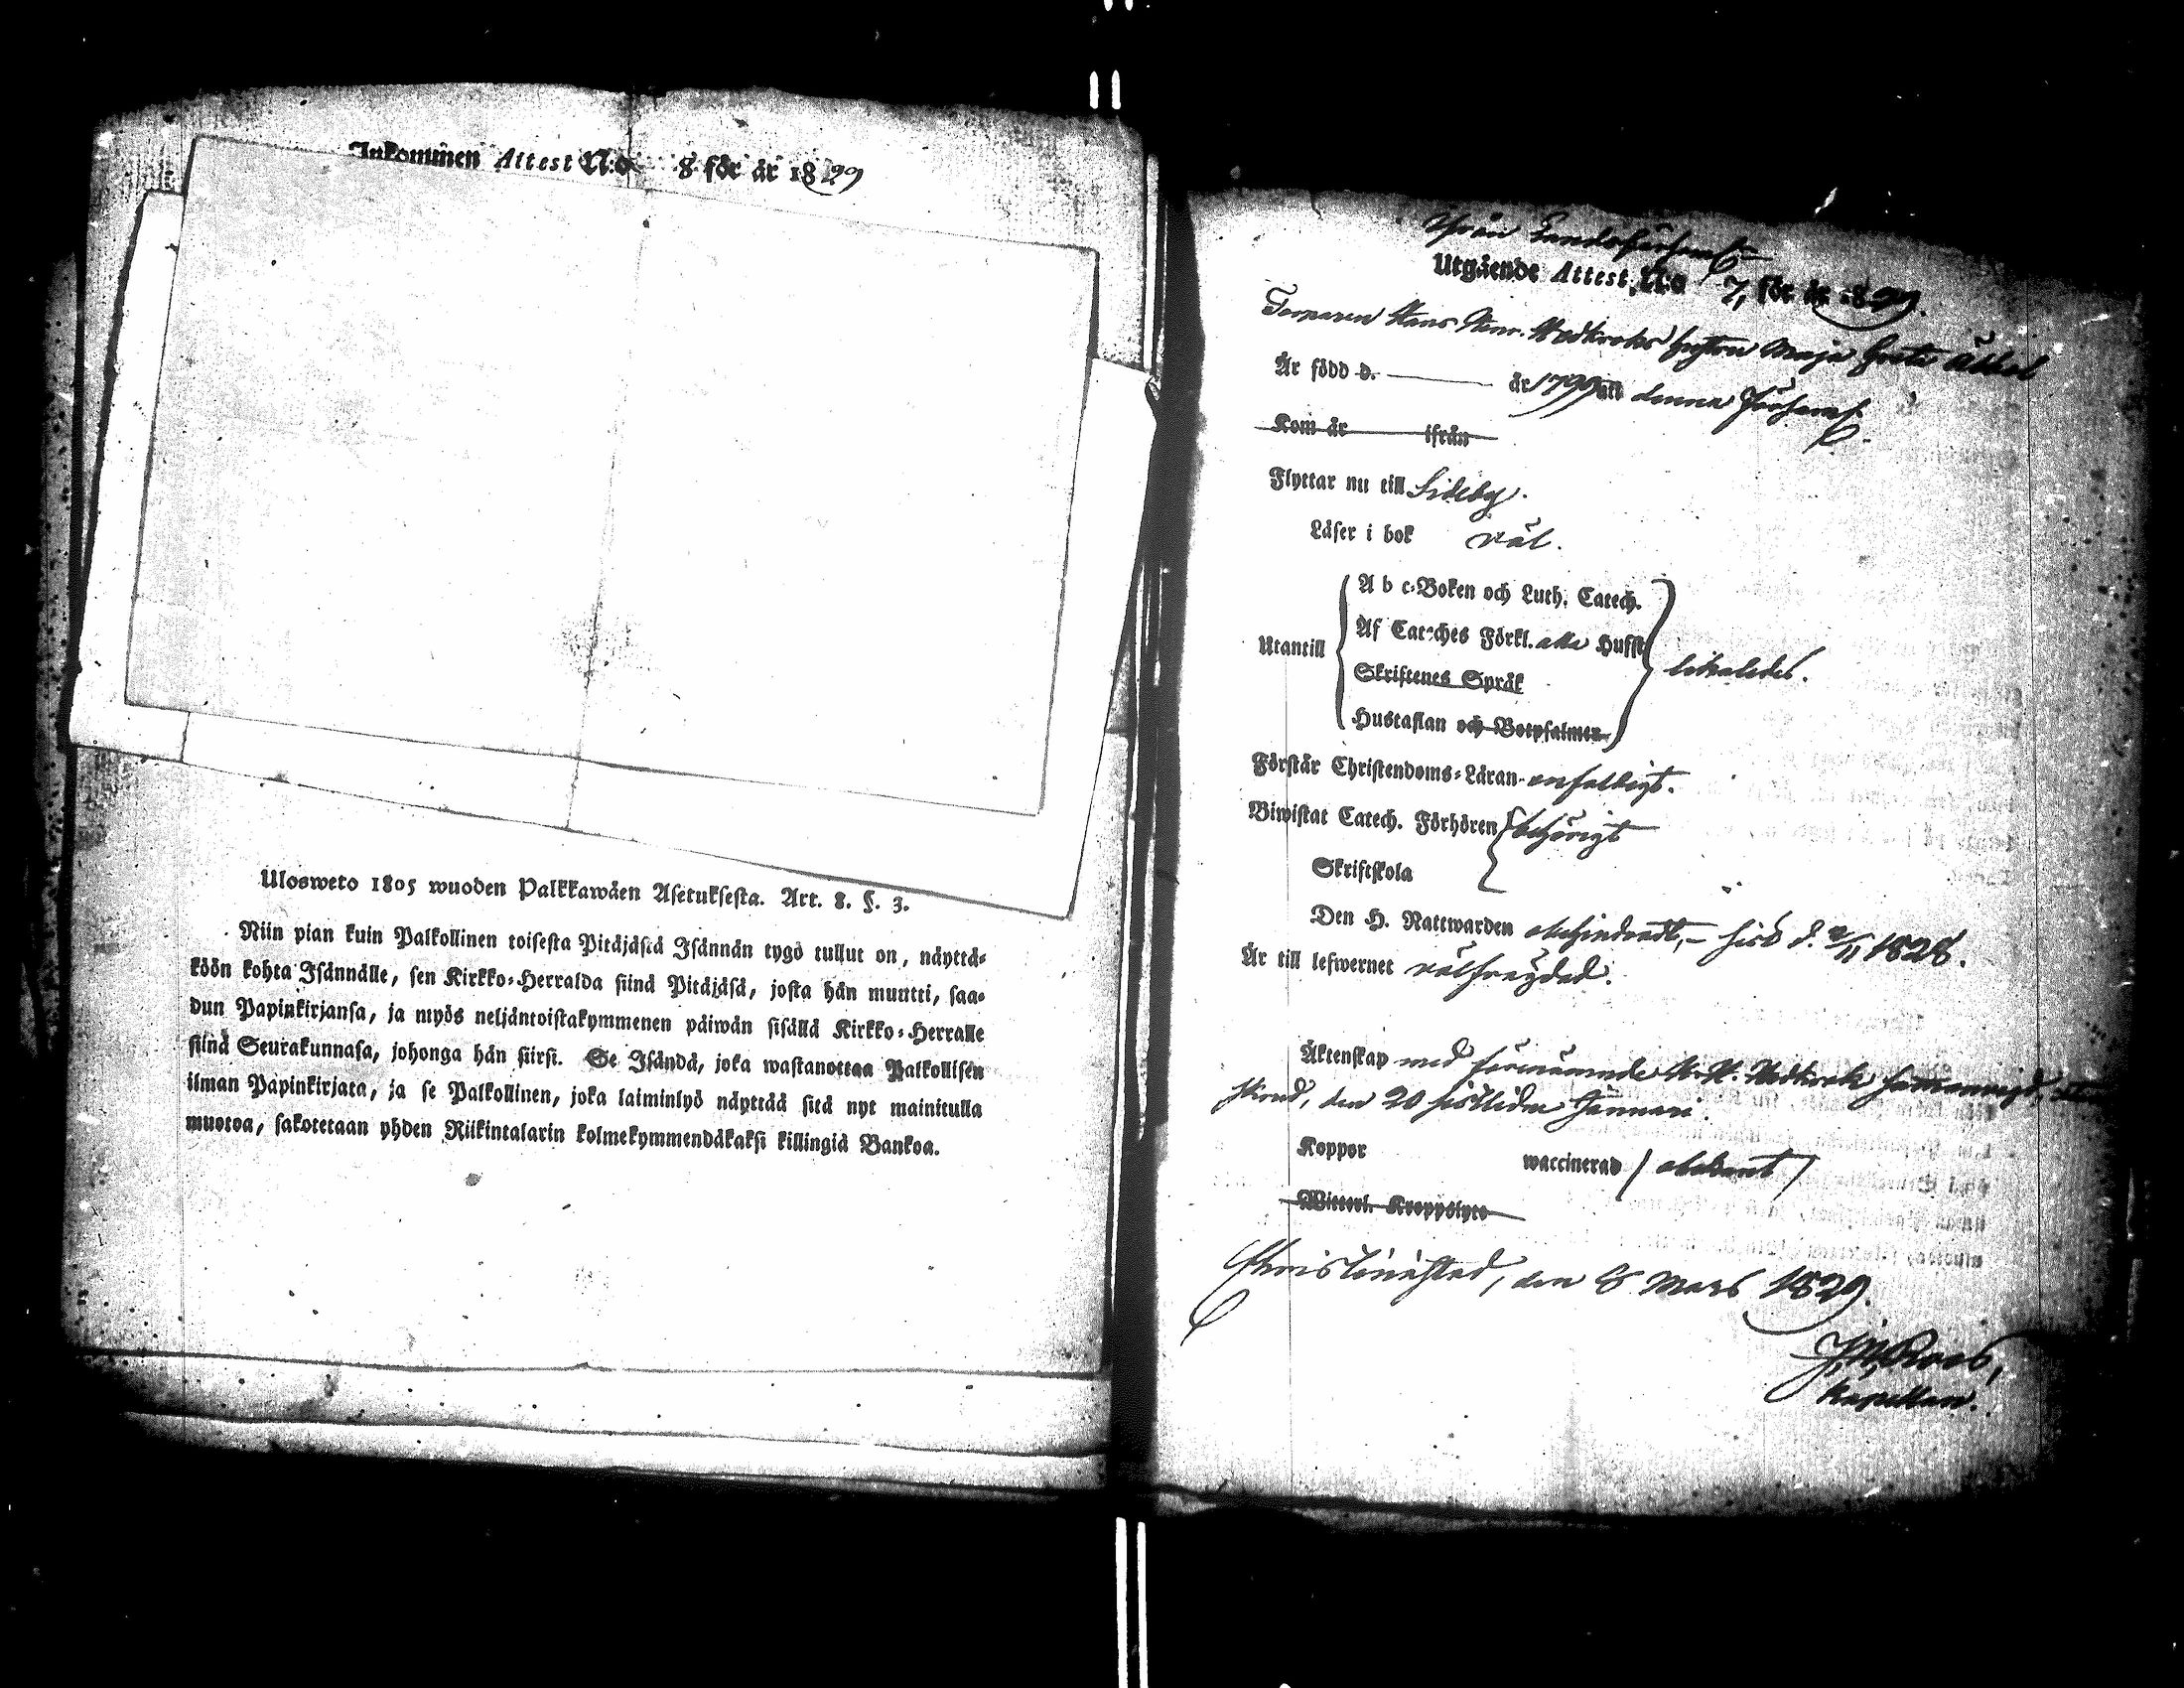 Inkommen Attest N:o 8 för år 1829
Ulosweto 1805 wuoden Palkkawäen Asetuksesta. Art. 8. §. 3.
Niin pian kuin Palkollinen toisesta Pitäjästä Isännän tygö tullut on, näyttä-
köön kohta Isännälle, sen Kirkko-Herralda siinä Pitäjäsä, josta hän muutti, saa-
dun Papinkirjansa, ja myös neljäntoistakymmenen päiwän sisällä Kirkko-Herralle
siinä Seurakunnasa, johonga hän siirsi. Se Isändä, joka wastanottaa Palkollisen
ilman Papinkirjata, ja se Palkollinen, joka laiminlyö näyttää sitä nyt mainitulla
muotoa, sakotetaan yhden Riikintalarin kolmekymmendäkaksi killingiä Bankoa.
Från Landsförsaml.
Utgående Attest, N:o 7, för år 1829.
Hans Henr. hustru Maja Greta
Är född d. år 1799 uti denna Församl.
Kom år ifrån
Flyttar nu till Sideby.
Läser i bok väl.
A b c-Boken och Luth. Catech.
Af Cateches Förkl. alla Hufst
Utantill likaledes.
Skriftenes Språk
Hustaflan och Botpsalmen
Förstår Christendoms-Läran enfaldigt.
Biwistat Catech. Förhören behörigt
Skriftskola
Den H. Nattwarden obehindradt, – sist d. /11 1828.
Är till lefwernet välfrägdad.
Äktenskap med förenämnde H. H. sammanvigd,
den 20 sistlidne Januari.
Koppor waccinerad / obekant /
Witterl. Kroppslyte
Christinestad, den 8 Mars 1829.
J. M. Roos,
Kapellan.